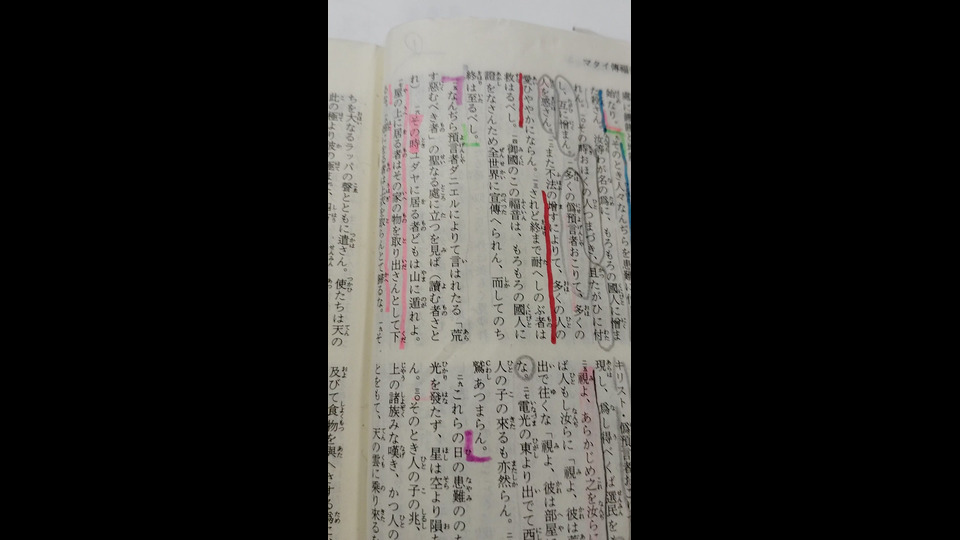 マタイ傳福
始なり。そのとき人々なんぢらを患難に付
なんぢら我が名の爲に、もろもろの國人に憎ま
れん。そのとき多くの人つまづき、且たがひに付
し、互に憎まん。多くの僞預言者おこりて、多くの
人を惑さん。また不法の増すによりて、多くの人の
愛ひややかにならん。されど終まで耐へしのぶ者は
救はるべし。御國のこの福音は、もろもろの國人に
證をなさんため全世界に宣傳へられん、而してのち
終は至るべし。
なんぢら預言者ダニエルによりて言はれたる「荒
す惡むべき者」の聖なる處に立つを見ば(讀む者さと
れ)その時ユダヤに居る者どもは山に遁れよ。
屋の上に居る者はその家の物を取り出さんとして下
キリスト 僞預言者おこり
現し、爲し得べくば選民を
視よ、あらかじめ之を汝らに
ば人もし汝らに「視よ、彼は荒
出で往くな「視よ、彼は部屋
な。電光の東より出でて西
人の子の來るも亦然らん。
鷲あつまらん。
二九 これらの日の患難ののち
光を發たず、星は空より隕ち
ん。三〇 そのとき人の子の兆、
上の諸族みな嘆き、かつ人の
とをもて、天の雲に乘り來るな
ちを大なるラッパの聲とともに遣さん。使たちは天の
此の極より彼の極まで、
及びて食物を與へさする爲に